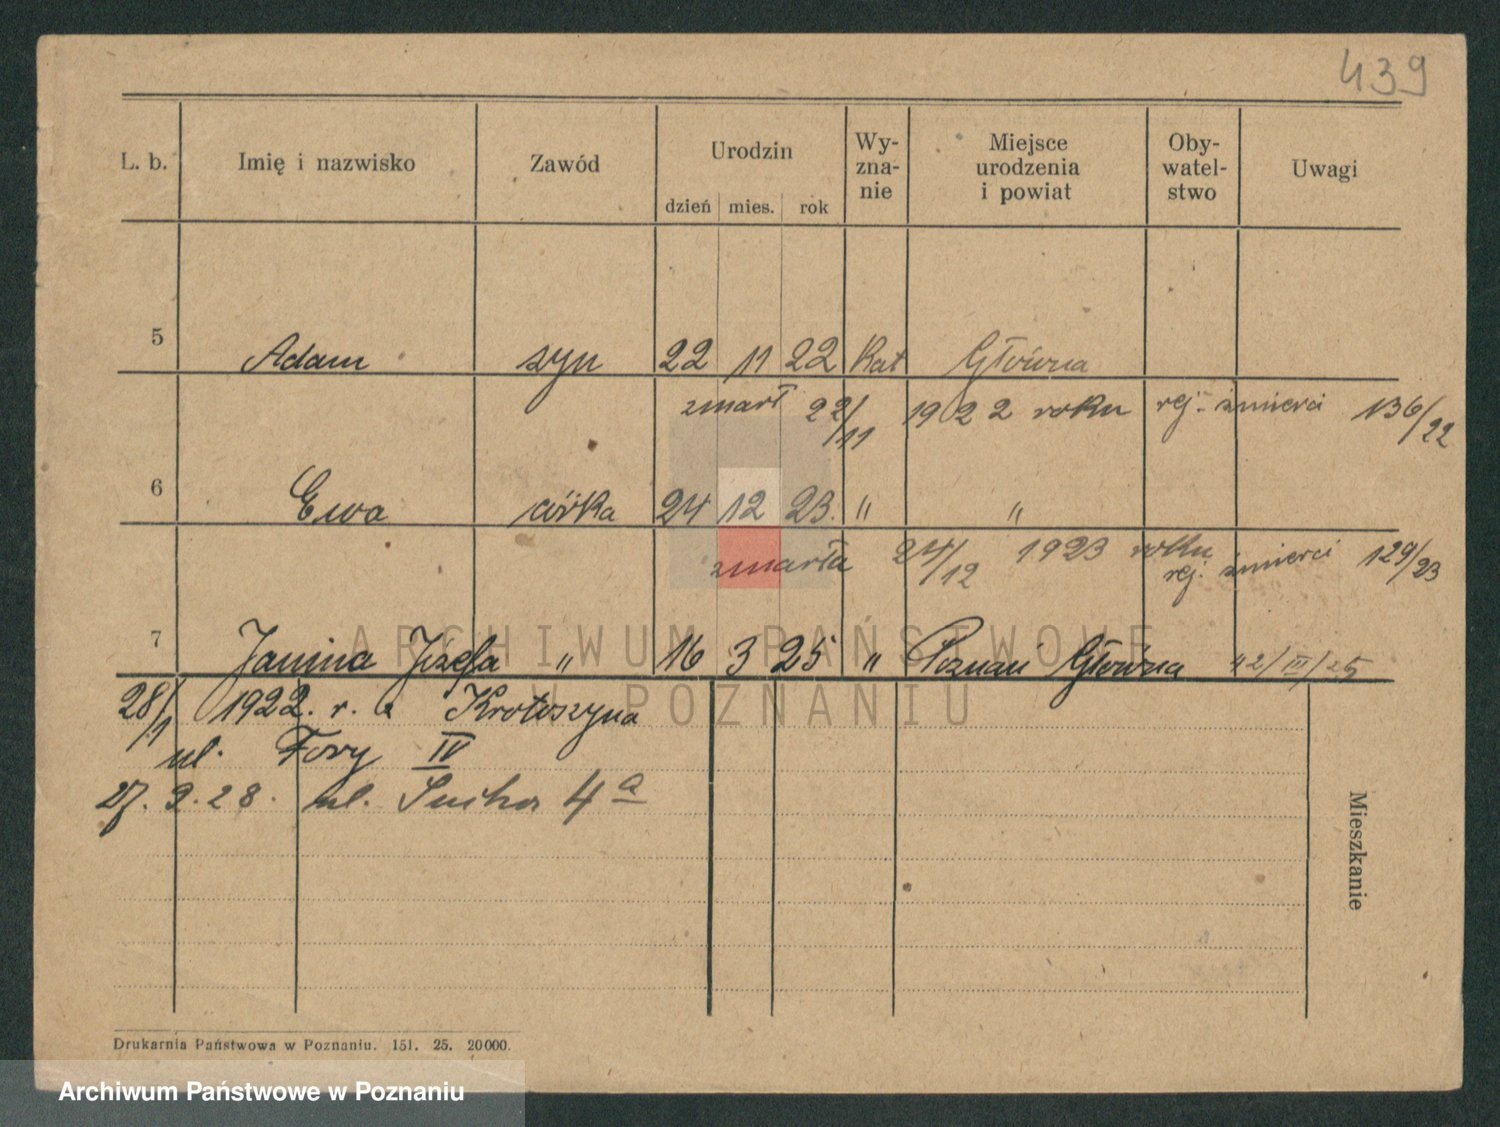 439
L. b. Imię i nazwisko Zawód Urodzin Wy-zna-nie Miejsce urodzenia i powiat Oby-watel-stwo Uwagi
dzień mies. rok
5 Adam syn 22 11 22 Kat Główna
zmarł 22/11 1922 roku rej. śmierci 136/22
6 Ewa córka 24 12 23. " "
zmarła 24/12 1923 roku rej. śmierci 129/23
7 Janina Józefa " 16 3 25 " Poznań Główna 42/III/25
28/1 1922. r. z Krotoszyna
ul. Fory IV
27. 9. 28. ul. Sucha 4a
Mieszkanie
Drukarnia Państwowa w Poznaniu. 151. 25. 20000.
ARCHIWUM PAŃSTWOWE
W POZNANIU
Archiwum Państwowe w Poznaniu